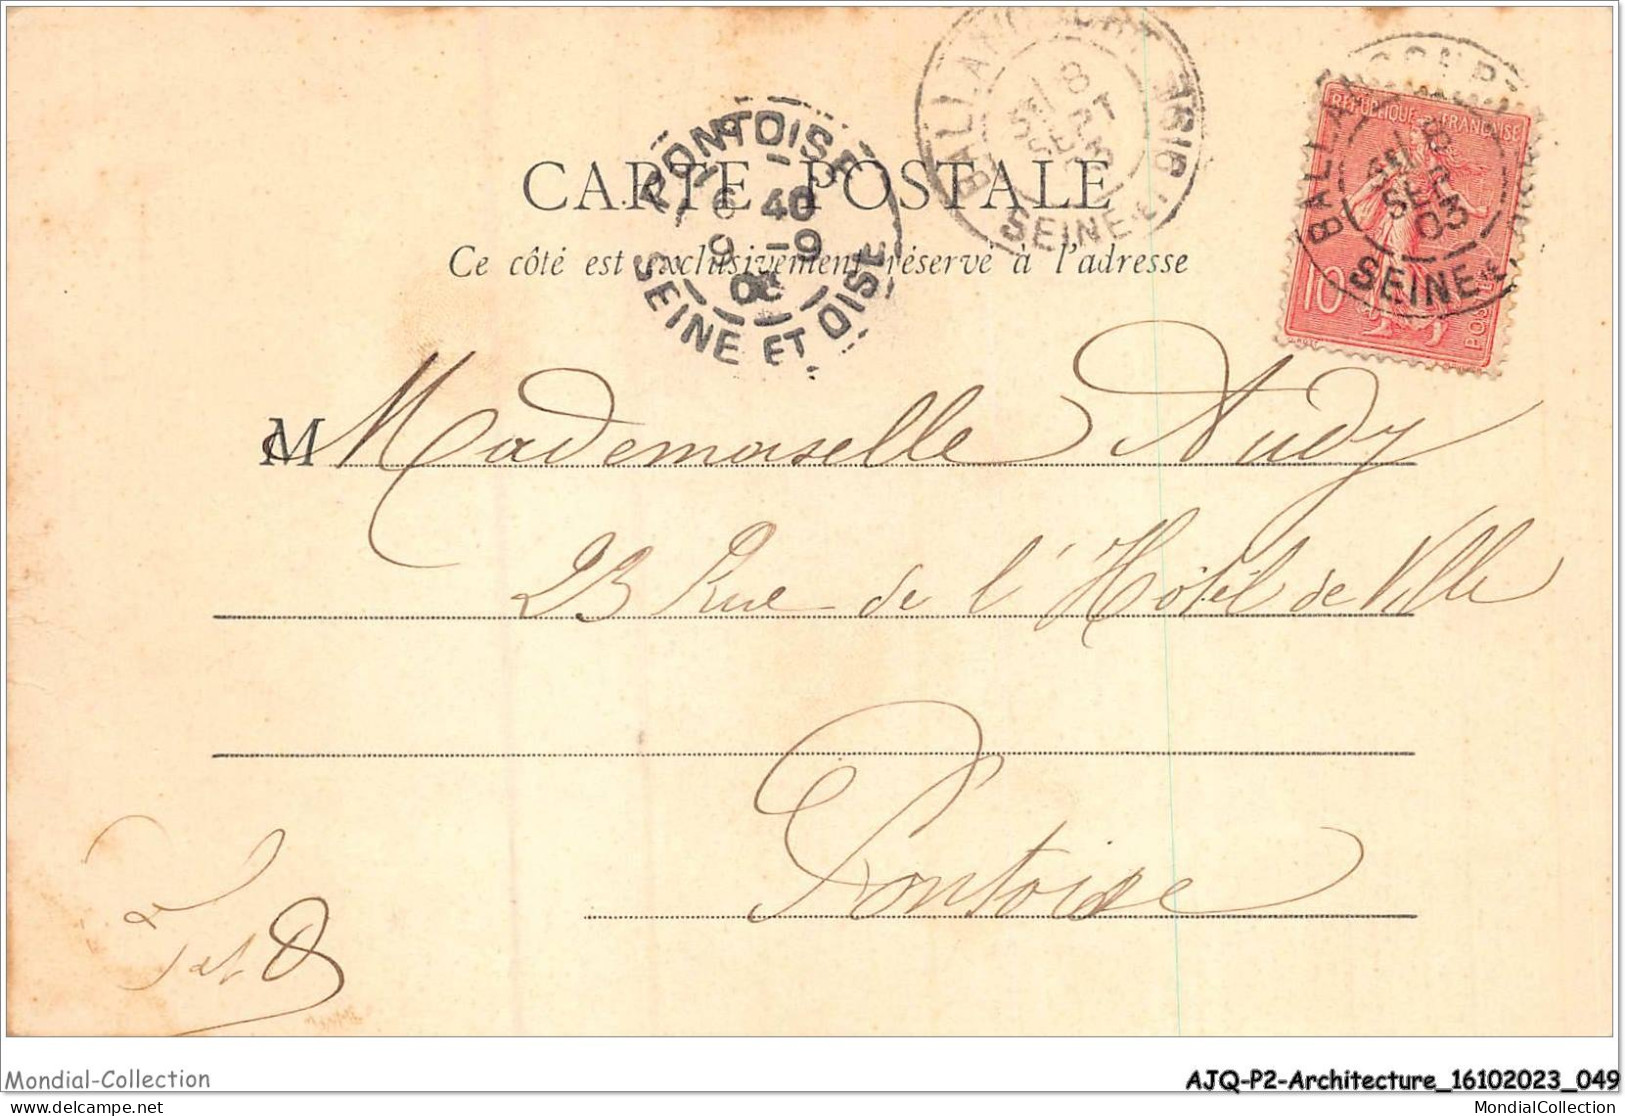 BALLANCOURT
SEINE-ET-OISE
8
SEPT
03
PONTOISE
6 40
9 -9
03
SEINE ET OISE
REPUBLIQUE FRANÇAISE
10
POSTES
BALLANCOURT
8
SEPT
03
SEINE-ET
CARTE POSTALE
Ce côté est exclusivement réservé à l'adresse
M Mademoiselle Audy
23 Rue de l'Hôtel de Ville
Pontoise
Mondial-Collection
AJQ-P2-Architecture_16102023_049
delcampe.net
MondialCollection